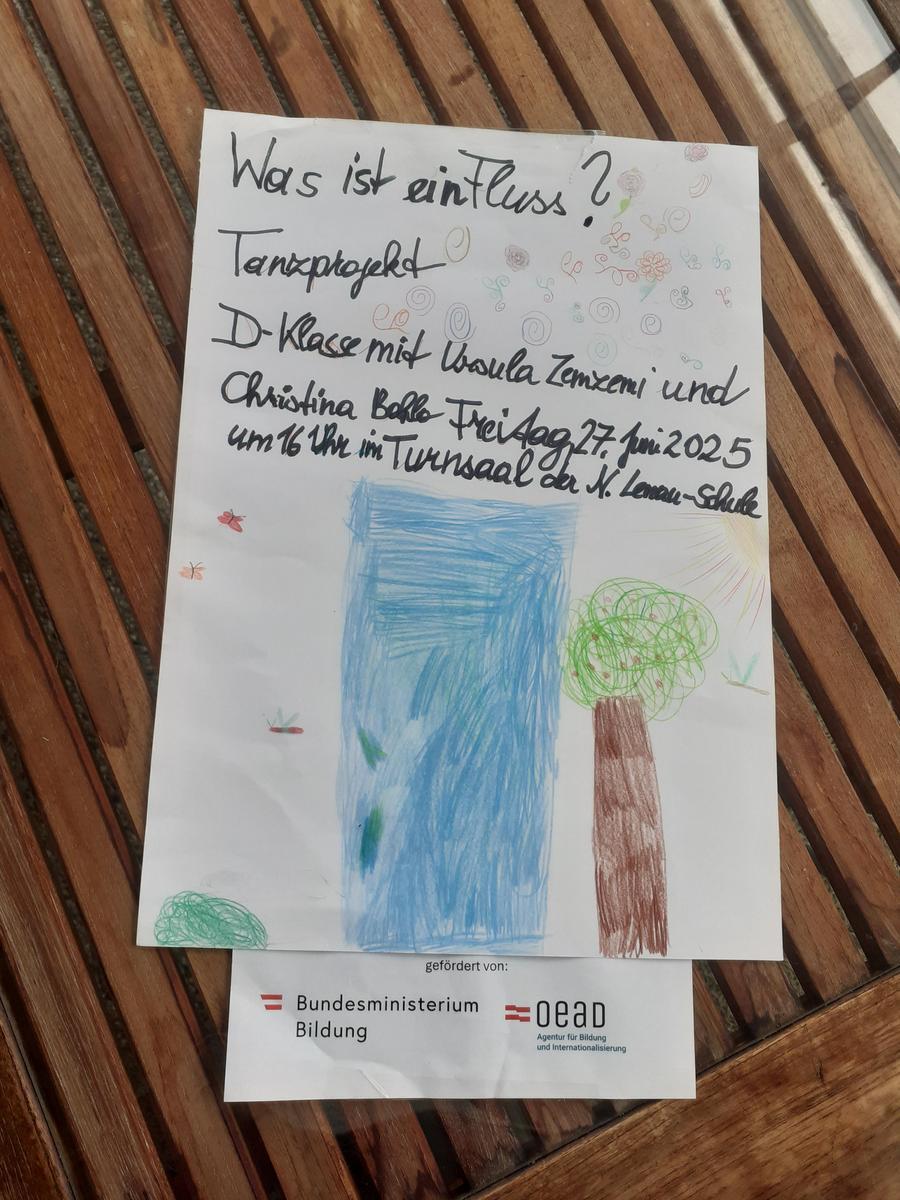 Was ist ein Fluss?
Tanzprojekt
D-Klasse mit Ursula Zemzemi und
Christina Freitag 27. Juni 2025
um 16 Uhr im Turnsaal der N. Lenau-Schule
gefördert von:
Bundesministerium
Bildung
OeAD
Agentur für Bildung
und Internationalisierung